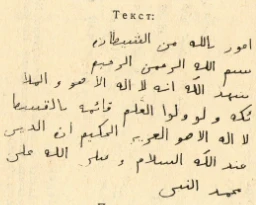 Текст:
اعوذ بالله من الشيطان
بسم الله الرحمن الرحيم
شهد الله انه لا اله الا هو و الملا
ئكه و لو لوا العلم قائمه بالقسط
لا اله الا هو العزيز الحكيم ان الدين
عند الله السلام و صلى الله على
محمد النبى